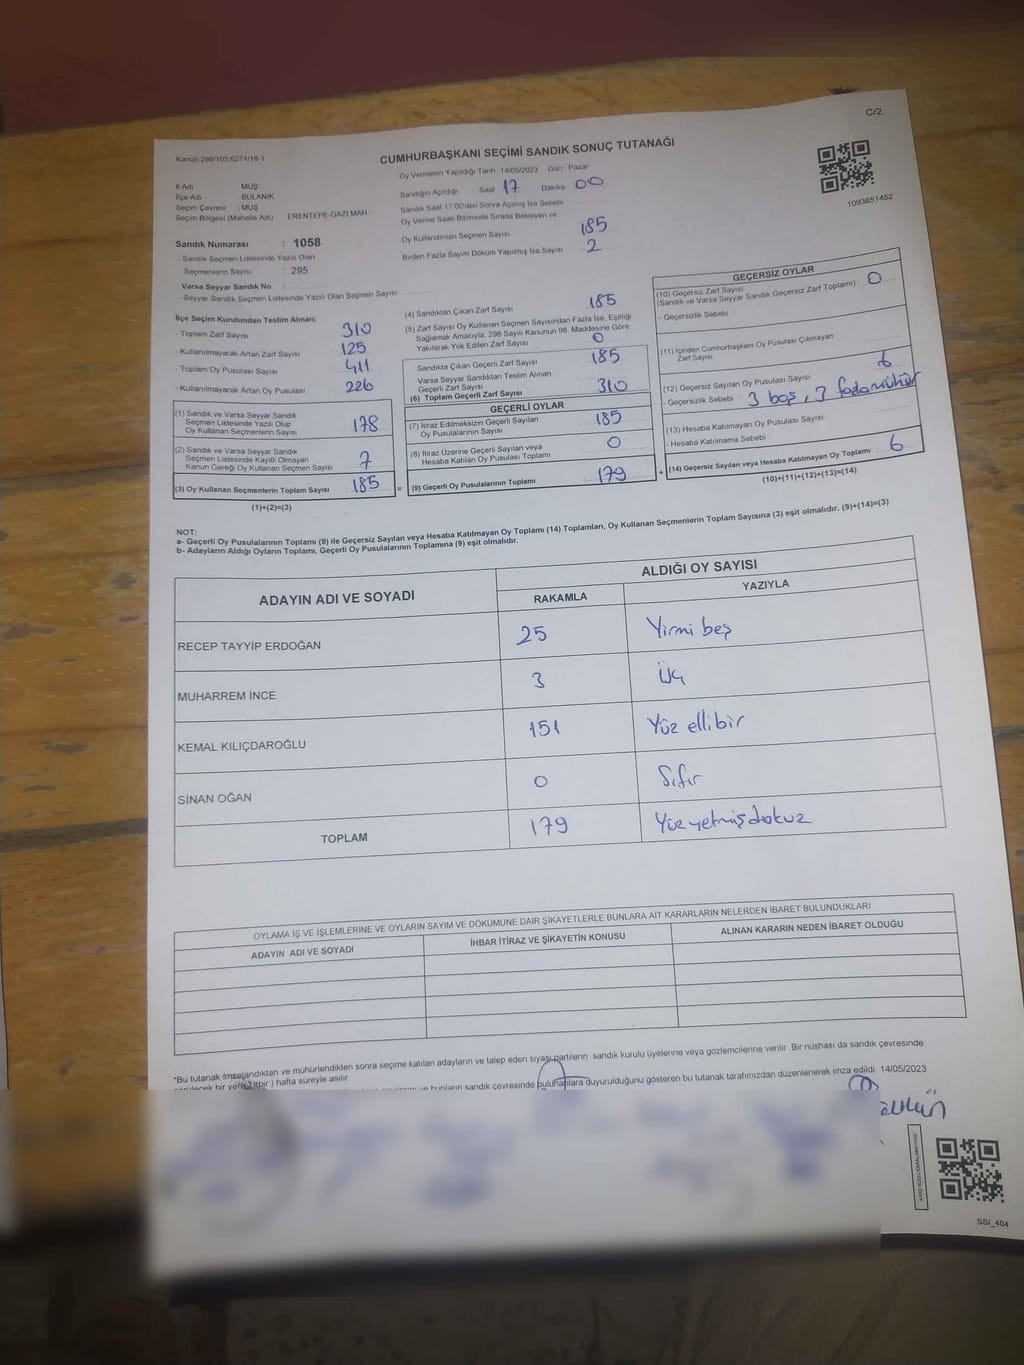 C/2
Kanun:298/105;6271/18-1
CUMHURBAŞKANI SEÇİMİ SANDIK SONUÇ TUTANAĞI
Oy Vermenin Yapıldığı Tarih 14/05/2023 Gün Pazar
İl Adı MUŞ
İlçe Adı BULANIK
Seçim Çevresi : MUŞ
Seçim Bölgesi (Mahalle Adı) ERENTEPE-GAZİ MAH
Sandığın Açıldığı Saat 17 Dakika 00
Sandık Saat 17:00'den Sonra Açılmış İse Sebebi
Oy Verme Saati Bitiminde Sırada Bekleyen ve
Oy Kullandırılan Seçmen Sayısı 185
Birden Fazla Sayım Döküm Yapılmış İse Sayısı 2
1093851452
Sandık Numarası : 1058
- Sandık Seçmen Listesinde Yazılı Olan
Seçmenlerin Sayısı : 295
Varsa Seyyar Sandık No :
- Seyyar Sandık Seçmen Listesinde Yazılı Olan Seçmen Sayısı
İlçe Seçim Kurulundan Teslim Alınan;
- Toplam Zarf Sayısı 310
- Kullanılmayarak Artan Zarf Sayısı 125
- Toplam Oy Pusulası Sayısı 411
- Kullanılmayarak Artan Oy Pusulası 226
(1) Sandık ve Varsa Seyyar Sandık
Seçmen Listesinde Yazılı Olup
Oy Kullanan Seçmenlerin Sayısı 178
(2) Sandık ve Varsa Seyyar Sandık
Seçmen Listesinde Kayıtlı Olmayan
Kanun Gereği Oy Kullanan Seçmen Sayısı 7
(3) Oy Kullanan Seçmenlerin Toplam Sayısı 185
(1)+(2)=(3)
(4) Sandıktan Çıkan Zarf Sayısı 185
(5) Zarf Sayısı Oy Kullanan Seçmen Sayısından Fazla İse, Eşitliği
Sağlamak Amacıyla, 298 Sayılı Kanunun 98. Maddesine Göre
Yakılarak Yok Edilen Zarf Sayısı 0
Sandıkta Çıkan Geçerli Zarf Sayısı 185
Varsa Seyyar Sandıktan Teslim Alınan
Geçerli Zarf Sayısı
(6) Toplam Geçerli Zarf Sayısı 310
GEÇERLİ OYLAR
(7) İtiraz Edilmeksizin Geçerli Sayılan
Oy Pusulalarının Sayısı 185
(8) İtiraz Üzerine Geçerli Sayılan veya
Hesaba Katılan Oy Pusulası Toplamı 0
= (9) Geçerli Oy Pusulalarının Toplamı 179
GEÇERSİZ OYLAR
(10) Geçersiz Zarf Sayısı
(Sandık ve Varsa Seyyar Sandık Geçersiz Zarf Toplamı) 0
- Geçersizlik Sebebi
(11) İçinden Cumhurbaşkanı Oy Pusulası Çıkmayan
Zarf Sayısı
(12) Geçersiz Sayılan Oy Pusulası Sayısı 6
- Geçersizlik Sebebi 3 boş, 3 fazla mühür
(13) Hesaba Katılmayan Oy Pusulası Sayısı
- Hesaba Katılmama Sebebi
+ (14) Geçersiz Sayılan veya Hesaba Katılmayan Oy Toplamı 6
(10)+(11)+(12)+(13)=(14)
NOT:
a- Geçerli Oy Pusulalarının Toplamı (9) ile Geçersiz Sayılan veya Hesaba Katılmayan Oy Toplamı (14) Toplamları, Oy Kullanan Seçmenlerin Toplam Sayısına (3) eşit olmalıdır. (9)+(14)=(3)
b- Adayların Aldığı Oyların Toplamı, Geçerli Oy Pusulalarının Toplamına (9) eşit olmalıdır.
ADAYIN ADI VE SOYADI
ALDIĞI OY SAYISI
RAKAMLA YAZIYLA
RECEP TAYYİP ERDOĞAN 25 Yirmi beş
MUHARREM İNCE 3 Üç
KEMAL KILIÇDAROĞLU 151 Yüz ellibir
SİNAN OĞAN 0 Sıfır
TOPLAM 179 Yüz yetmiş dokuz
OYLAMA İŞ VE İŞLEMLERİNE VE OYLARIN SAYIM VE DÖKÜMÜNE DAİR ŞİKAYETLERLE BUNLARA AİT KARARLARIN NELERDEN İBARET BULUNDUKLARI
ADAYIN ADI VE SOYADI İHBAR İTİRAZ VE ŞİKAYETİN KONUSU ALINAN KARARIN NEDEN İBARET OLDUĞU
*Bu tutanak imzalandıktan ve mühürlendikten sonra seçime katılan adayların ve talep eden siyasi partilerin sandık kurulu üyelerine veya gözlemcilerine verilir Bir nüshası da sandık çevresinde
bir yere (bir) hafta süreyle asılır
bunların sandık çevresinde bulunanlara duyurulduğunu gösteren bu tutanak tarafımızdan düzenlenerek imza edildi. 14/05/2023
KARE KODU KARALAMAYINIZ!
SSI_404